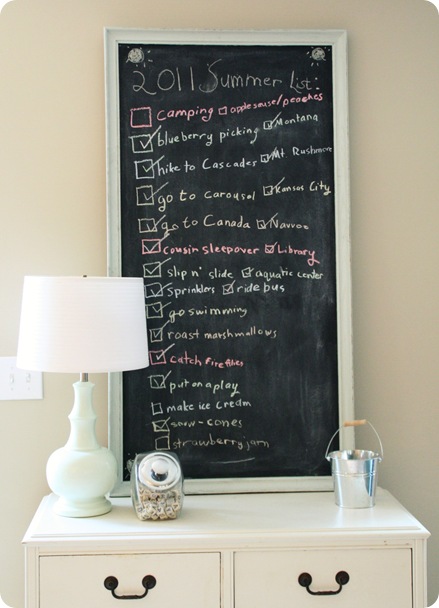 2011 Summer List:
camping applesause/peaches
blueberry picking Montana
hike to Cascades Mt Rushmore
go to Carousel Kansas City
go to Canada Nauvoo
cousin sleepover Library
slip n' slide aquatic center
Sprinklers ride bus
go swimming
roast marshmallows
catch fireflies
put on a play
make ice cream
snow-cones
strawberry jam